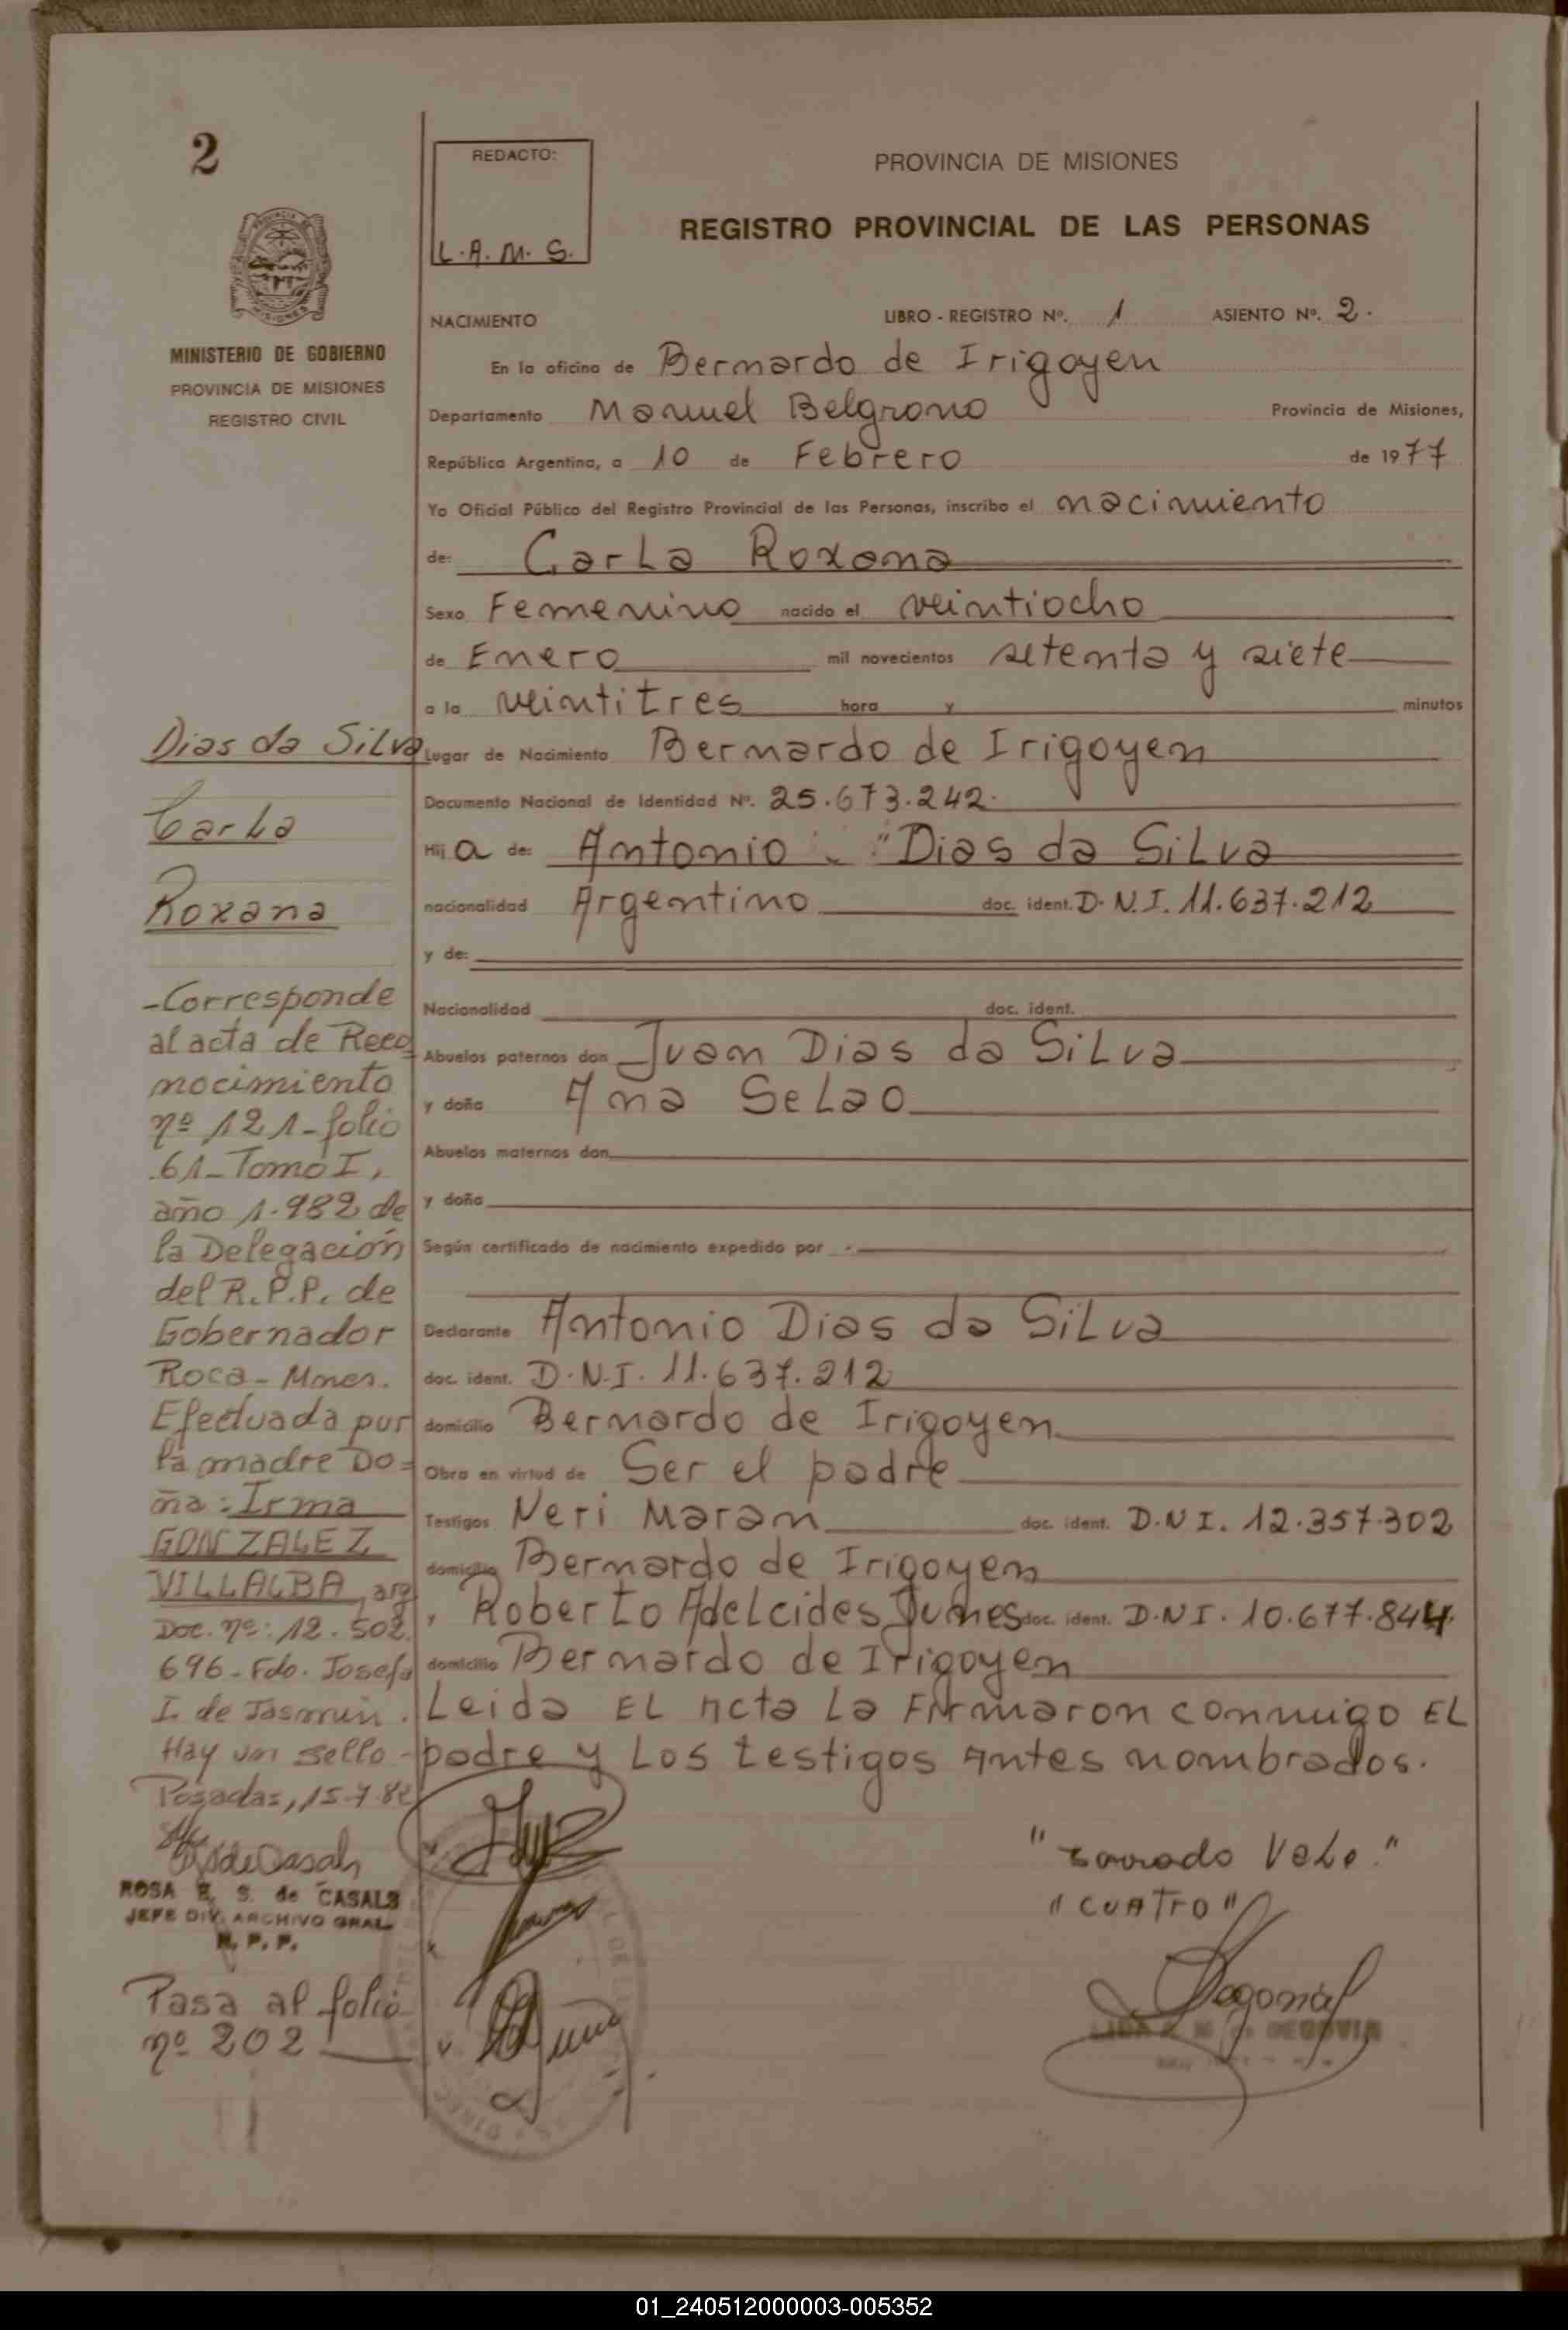 2
MINISTERIO DE GOBIERNO
PROVINCIA DE MISIONES
REGISTRO CIVIL
Dias da Silva
Carla
Roxana
-Corresponde
al acta de Reco
nocimiento
nº 121-folio
61-Tomo I,
año 1.982 de
la Delegación
del R.P.P. de
Gobernador
Roca-Mnes.
Efectuada por
la madre Do=
ña: Irma
GONZALEZ
VILLALBA, arg
Doc. nº: 12.502.
696-Fdo. Josefa
I. de Jasmin.
Hay un sello-
Posadas, 15-7-82
ROSA E. S. de CASALS
JEFE DIV. ARCHIVO GRAL.
R. P. P.
Pasa al folio
nº 202
REDACTO:
L.A.M.S.
PROVINCIA DE MISIONES
REGISTRO PROVINCIAL DE LAS PERSONAS
NACIMIENTO LIBRO - REGISTRO Nº. 1 ASIENTO Nº. 2.
En la oficina de Bernardo de Irigoyen
Departamento Manuel Belgrano Provincia de Misiones,
República Argentina, a 10 de Febrero de 1977
Yo Oficial Público del Registro Provincial de las Personas, inscribo el nacimiento
de: Carla Roxana
Sexo Femenino nacido el veintiocho
de Enero mil novecientos setenta y siete
a la veintitres hora y minutos
Lugar de Nacimiento Bernardo de Irigoyen
Documento Nacional de Identidad Nº. 25.673.242.
Hija de: Antonio "Dias da Silva
nacionalidad Argentino doc. ident. D.N.I. 11.637.212
y de:
Nacionalidad doc. ident.
Abuelos paternos don Juan Dias da Silva
y doña Ana Selao
Abuelos maternos don
y doña
Según certificado de nacimiento expedido por
Declarante Antonio Dias da Silva
doc. ident. D.N.I. 11.637.212
domicilio Bernardo de Irigoyen
Obra en virtud de Ser el padre
Testigos Neri Maran doc. ident. D.N I. 12.357.302
domicilio Bernardo de Irigoyen
, Roberto Adelcides Junes doc. ident. D.N I. 10.677.844.
domicilio Bernardo de Irigoyen
Leida EL Acta La Firmaron conmigo EL
padre y Los testigos Antes nombrados.
"Borrado Vale."
"CUATRO"
01_240512000003-005352